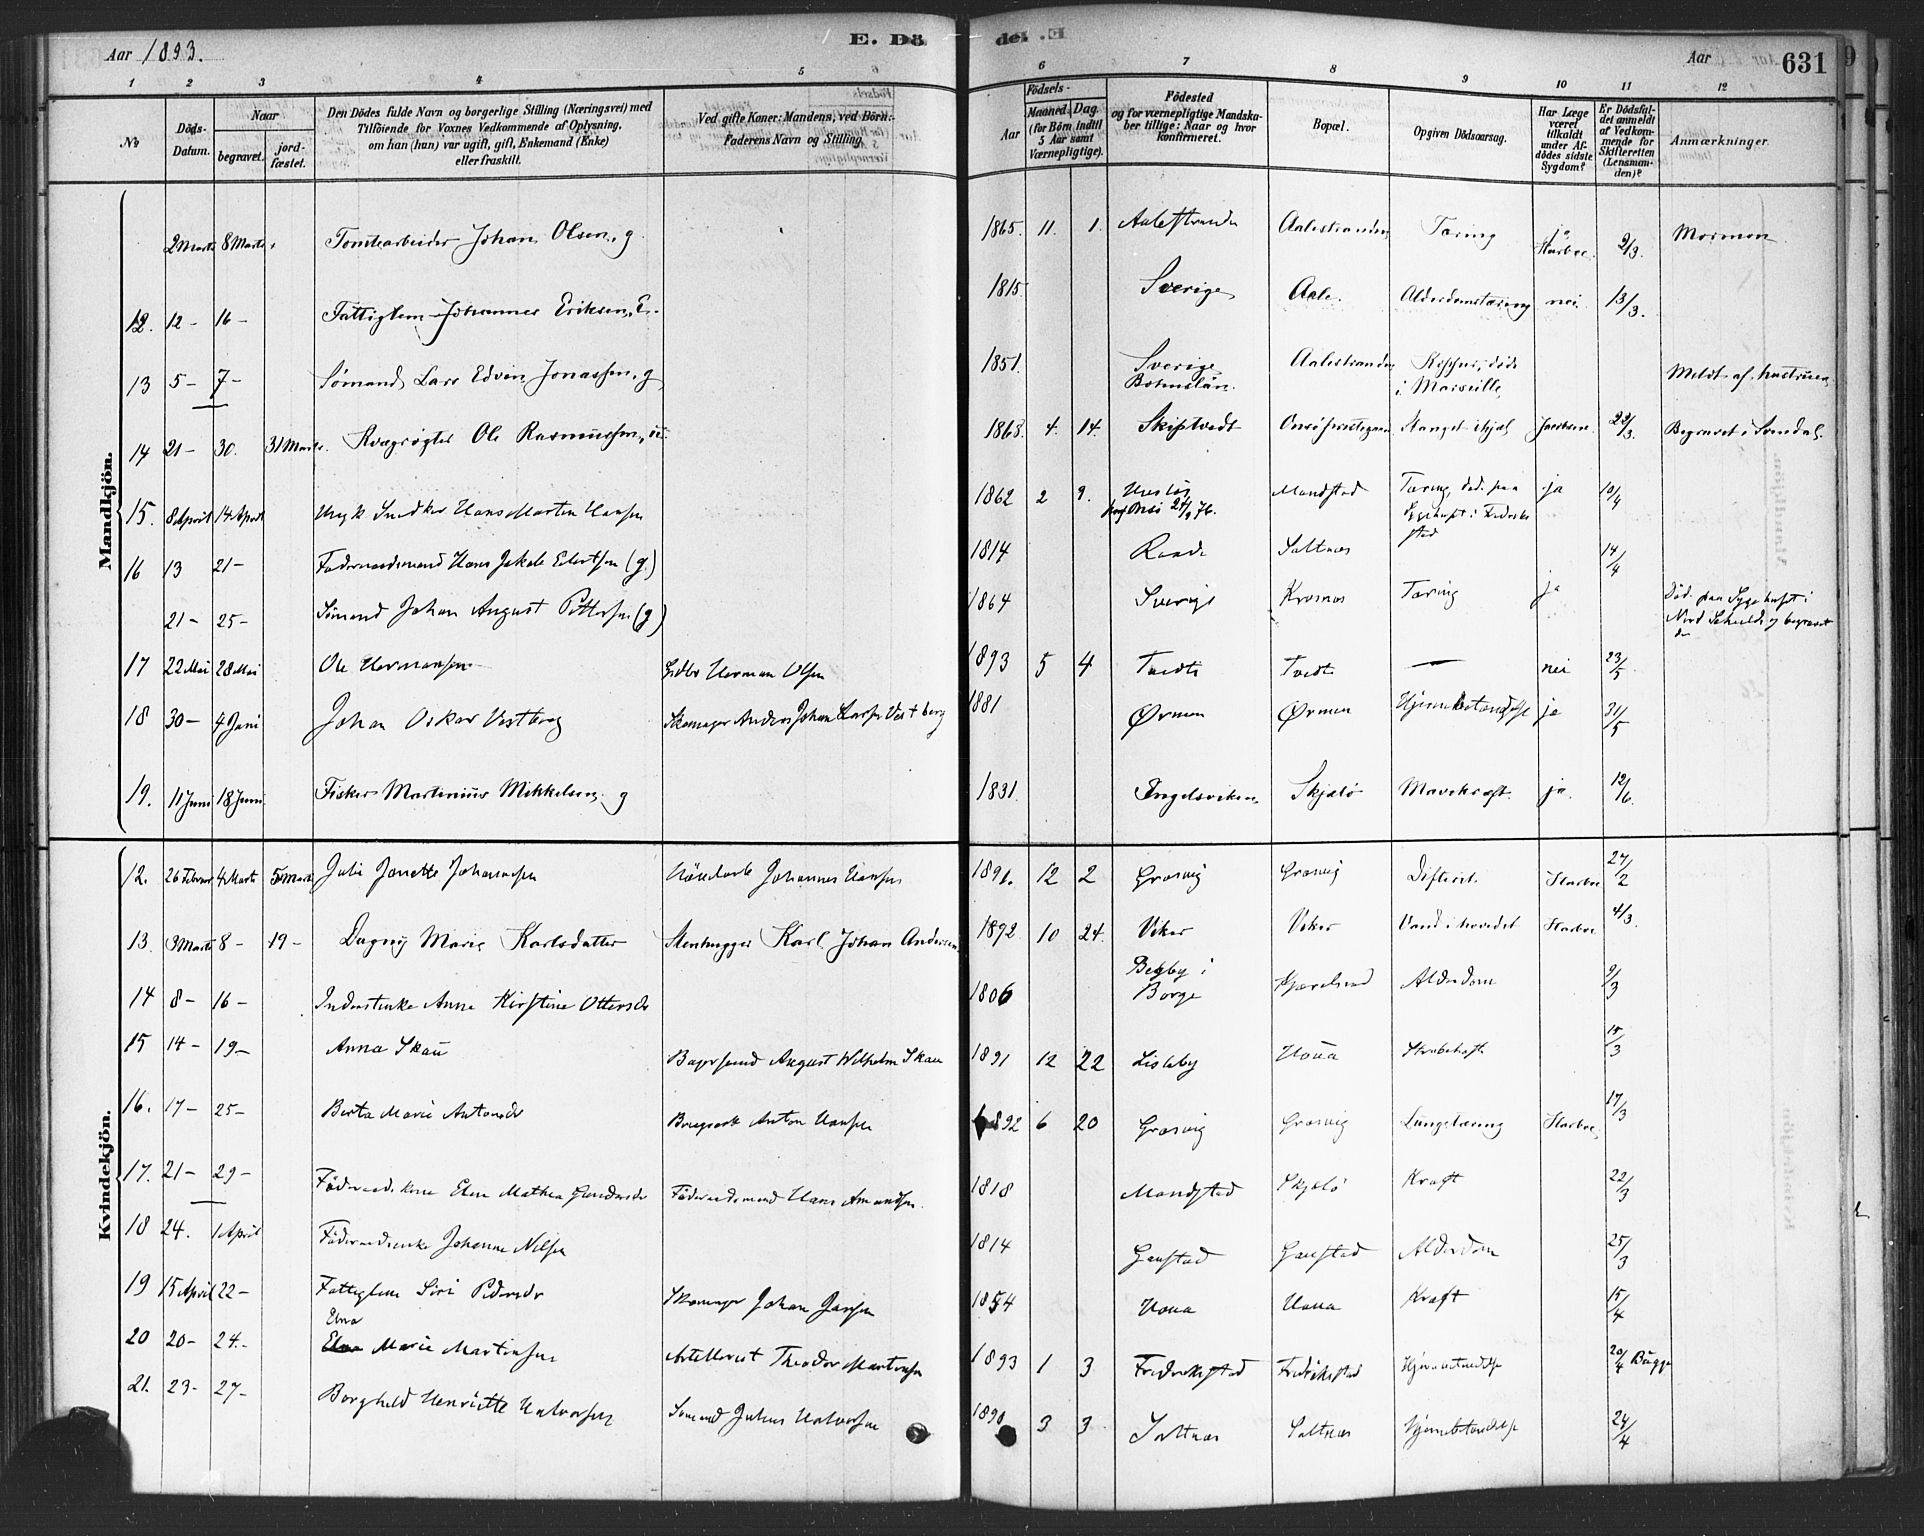 Aar 1893.
E. Dö
de: .E
Aar
631
1 2 3 4 5 6 7 8 9 10 11 12
No
Döds-Datum.
Naar
begravet.
jord-fæstet.
Den Dödes fulde Navn og borgerlige Stilling (Næringsvei) med
Tilföiende for Voxnes Vedkommende af Oplysning,
om han (hun) var ugift, gift, Enkemand (Enke)
eller fraskilt.
Ved gifte Koner: Mandens, ved Börn:
Faderens Navn og Stilling.
Födsels-
Aar
Maaned. Dag.
(for Börn indtil
5 Aar samt
Værnepligtige).
Födested
og for værnepligtige Mandska-
ber tillige: Naar og hvor
konfirmeret.
Bopæl.
Opgiven Dödsaarsag.
Har Læge
været
tilkaldt
under Af-
dödes sidste
Sygdom?
Er Dödsfal-
det anmeldt
af Vedkom-
mende for
Skifteretten
(Lensman-
den)?
Anmærkninger.
Mandkjön.
2 Marts 8 Marts Tomtearbeider Johan Olsen, g 1865. 11. 1. Aalestranden Aalestranden Tæring ja Harboe 2/3. Mormon
12. 12 – 16 – Fattiglem Johannes Eriksen, E. 1815 Sverige Aale. Alderdomstæring nei 13/3.
13 5 – 7 – Sømand Lars Edvin Jonassen, g 1851. Sverige Bohuslän. Aalestranden døde i Marseille, Meldt af hustruen
14 21 – 30. 31 Marts. Kvægrøgter Ole Rasmussen, u 1868. 4. 14. Skiptvedt Stanget ihjel Jacobsen. 22/3. Begravet i Svindal.
15. 8 April 14 April Ungk Snedker Hans Martin Hansen 1862 2 9. 24/9 76. Mandstad Tæring, død paa Sygehuset i Frederikstad ja 10/4
16 13 21 – Føderaadsmand Hans Jakob Eilertsen (g.) 1814 Raade Saltnes 14/4
21 – 25 – Sømand Johan August Pettersen (g) 1864 Sverige Krosnes Tæring ja Død paa Sygehuset i Nord Schields og begravet der
17 22 Mai 28 Mai Ole Hermansen Herman Olsen 1893 5 4 Tvedte Tvedte — nei 23/5
18 30 – 4 Juni Johan Oskar Vestberg Skomager Anders Johan Larsen Vestberg 1881 Ørmen Ørmen Hjernebetændelse ja 31/5
19. 11 Juni 18 Juni Fisker Martinius Mikkelsen, g 1831. Engelsviken Skjælø Mavekræft. ja. 12/6.
Kvindekjön.
12. 26 Februar 4 Marts 5 Marts Julie Janette Johannesen Johannes Hansen 1891. 12 2 Græsvig Græsvig Difterit Harboe 27/2
13. 3 Marts 8 – 19 – Dagny Marie Karlsdatter Stenhugger Karl Johan Andersen 1892 10 24. Viker Viker Vand i hovedet Harboe 4/3.
14 8 – 16 – Inderstenke Anne Kirstine Ottersdr 1806 Begby i Borge Alderdom 9/3
15 14 – 19 – Anna Skau August Wilhelm Skau 1891 12 22 Lisleby Houa Strubehoste 15/3
16. 17 – 25 – Berta Marie Antonsdr Brugsarb Anton Hansen 1892 6 20 Græsvig Græsvig Lungetæring Harboe, 17/3
17. 21 – 29 – Føderaadskone Elen Mathea Gundersdr Føderaadsmand Hans Amundsen. 1818 Mandstad Skjælø Kræft 22/3
18 24. 1 April Føderaadsenke Johanne Nilsen 1814 Gaustad Gaustad Alderdom 25/3
19 15 April 22 – Fattiglem Siri Pedersdr Skomager Johan Jansen 1854 Houa Houa Kræft 15/4
20 20 – 24. – Elna Marie Martinsen Artillerist Theodor Martinsen 1893 1 3 Frederikstad Fredrikstad Hjernebetændelse 20/4 Bugge
21. 23 – 27 – Borghild Henriette Halvorsen Sømand Julius Halvorsen 1890 3 3 Saltnes Saltnes Hjernebetændelse 24/4